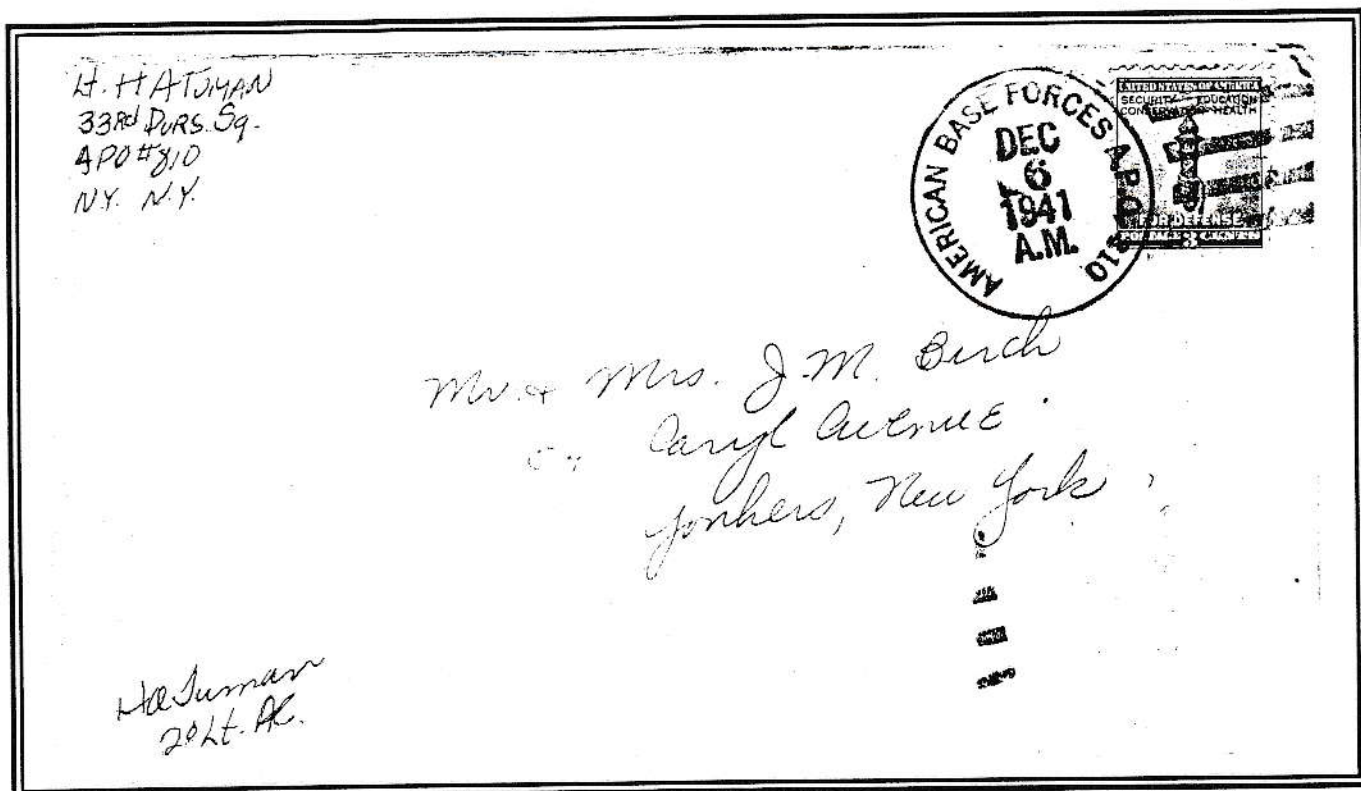 Lt. H A TUMAN
33Rd PURS. Sq.
APO #810
N.Y. N.Y.
AMERICAN BASE FORCES A.P.O. 810
DEC
6
1941
A.M.
UNITED STATES OF AMERICA
SECURITY EDUCATION
CONSERVATION HEALTH
FOR DEFENSE
POSTAGE 3 CENTS
Mr. & Mrs. J. M. Birch
Caryl Avenue
Yonkers, New York
HA Tuman
2d Lt. AC.